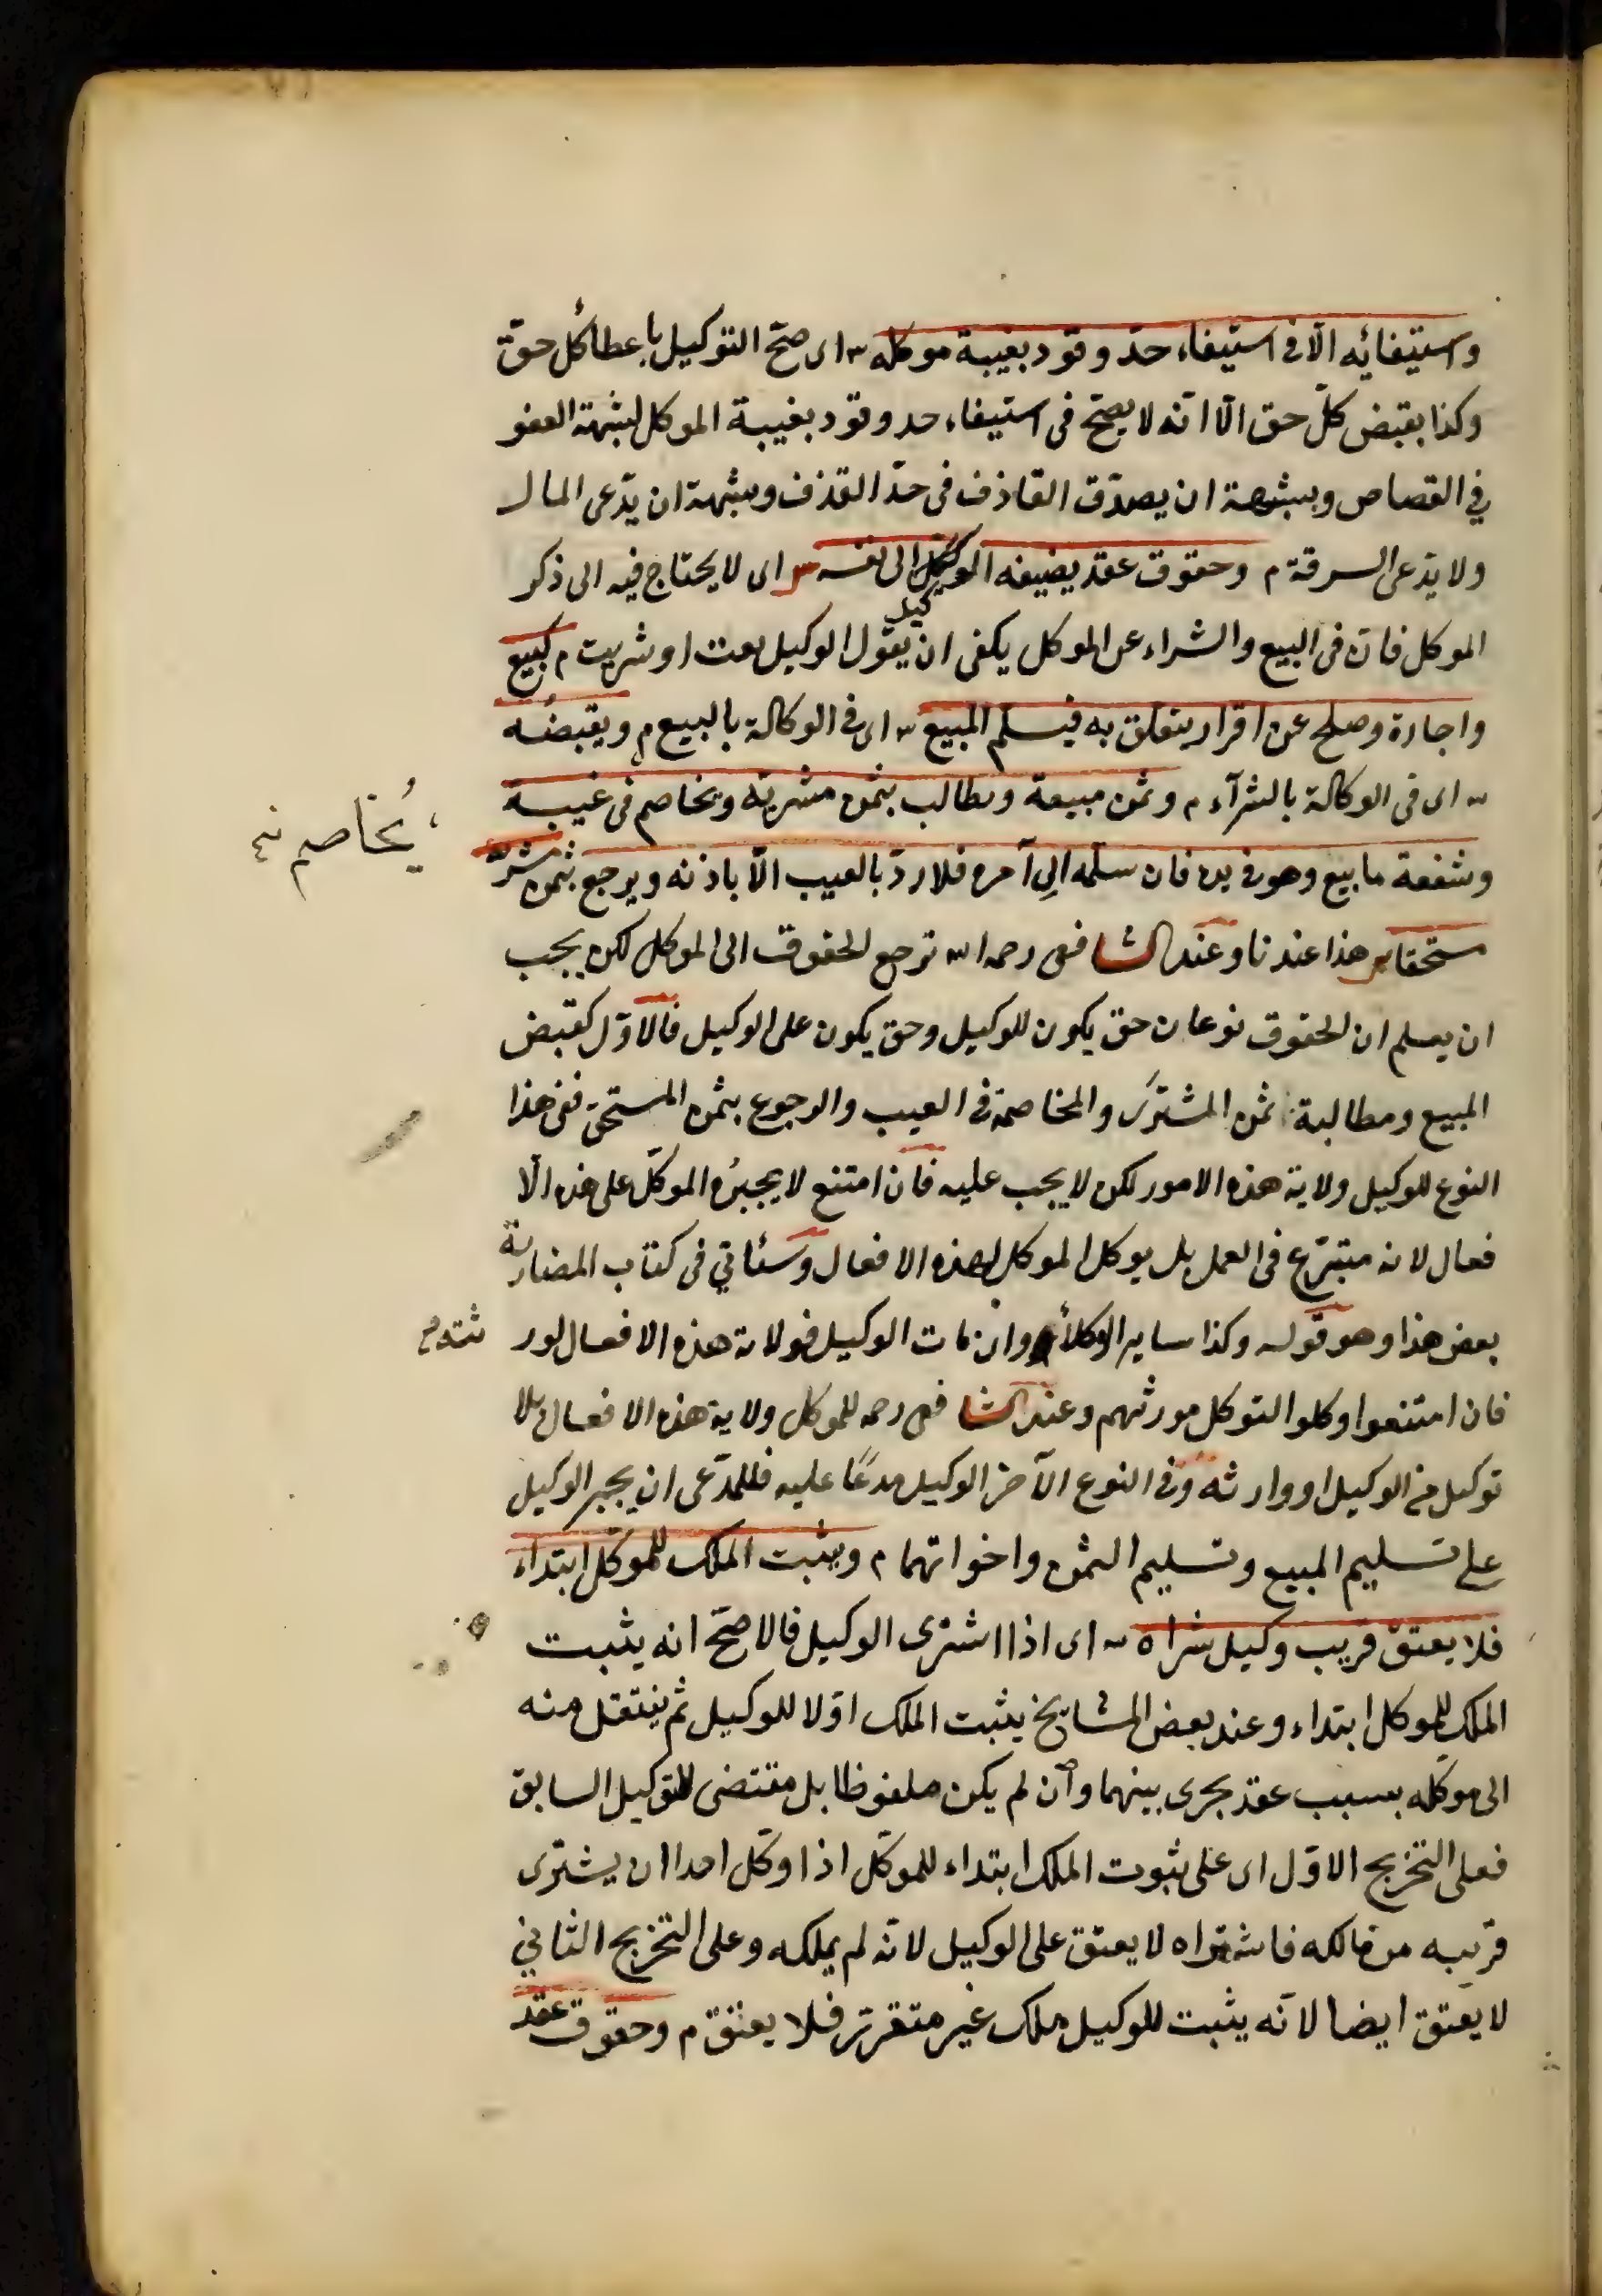 واستيفائه الّا فى استيفاء حدّ وقود بغيبة موكله س اى صحّ التوكيل باعطا كُل حقّ
وكذا بقبض كلّ حق الّا انّه لا يصحّ فى استيفاء حد وقود بغيبة الموكل لشبهة العفو
في القصاص وبشبهة ان يصدّق القاذف فى حدّ القذف وبشبهة ان يدّعى المال
ولا يدّعى السرقة م وحقوق عقد يضيفه الوكيل الى نفسه س اى لا يحتاج فيه الى ذكر
كيل
الموكل فانّ فى البيع والشراء عن الموكل يكفى ان يقول الوكيل بعت او شريت م كبيع
واجارة وصلح عن اقرار يتعلق به فيسلّم المبيع س اى فى الوكالة بالبيع م ويقبضُه
س اى فى الوكالة بالشرآء م وثمن مبيعة ويطالب بثمن مشريّه ويخاصم فى عيبه
وشفعة ما بيع وهو فى يده فان سلّمه الى آمره فلا ردّ بالعيب الّا باذنه ويرجع بثمن مشريّه
مستحقا س هذا عندنا وعند الشافعى رحمه الله ترجع الحقوق الى الموكل لكن يجب
ان يعلم ان الحقوق نوعان حق يكون للوكيل وحق يكون على الوكيل فالاوّل كقبض
المبيع ومطالبة ثمن المشترى والمخاصمة فى العيب والرجوع بثمن المستحق ففى هذا
النوع للوكيل ولاية هذه الامور لكن لا يجب عليه فان امتنع لا يجبرُه الموكّل على هذه الّا
فعال لانه متبرّع فى العمل بل يوكل الموكل لهذه الافعال وسئاتي فى كتاب المضاربة
بعض هذا وهو قوله وكذا ساير الوكلأ وان مات الوكيل فولاية هذه الافعال لور
فان امتنعوا وكلوا التوكل مورثهم وعند الشافعى رحمه للموكل ولاية هذه الافعال بلا
توكيل من الوكيل او وارثه وفى النوع الآخر الوكيل مدعًا عليه فللمدّعى ان يجبر الوكيل
على تسليم المبيع وتسليم الثمن واخواتهما م ويثبت الملك للموكّل ابتداء
فلا يعتق قريب وكيل شراه س اى اذا اشترى الوكيل فالاصحّ انه يثبت
الملك للموكل ابتداء وعند بعض المشايخ يثبت الملك اوّلا للوكيل ثم ينتقل منه
الى موكله بسبب عقد يجرى بينهما وان لم يكن ملفوظا بل مقتضى للتوكيل السابق
فعلى التخريج الاوّل اى على ثبوت الملك ابتداء للموكّل اذا وكّل احدا ان يشترى
قريبه من مالكه فاشتراه لا يعتق على الوكيل لانّه لم يملكه وعلى التخريج الثاني
لا يعتق ايضا لانّه يثبت للوكيل ملك غير متقرّر فلا يعتق م وحقوق عقد
يُخاصم نه